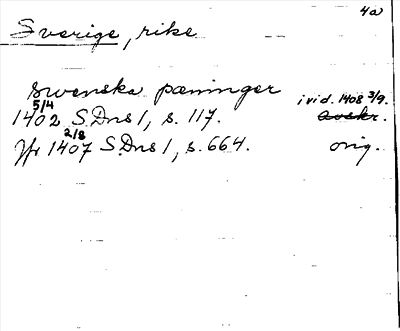 4a
Sverige, rike
swenska pæninger
1402 5/4 S.Dns 1, s. 117. i vid. 1408 3/9. avskr.
Jfr 1407 2/8 S.Dns 1, s. 664. orig.